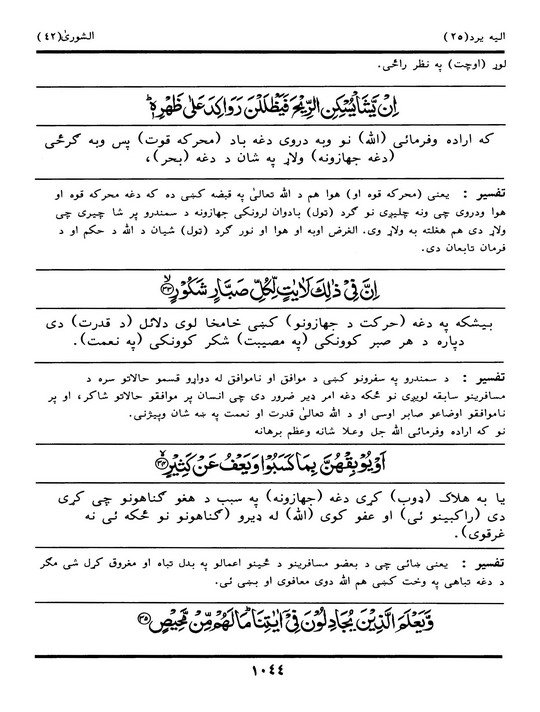 الیه یرد(۲۵) الشوریٰ(۴۲)
لوړ (اوچت) په نظر راځی.
اِنْ يَّشَأْ يُسْكِنِ الرِّيْحَ فَيَظْلَلْنَ رَوَاكِدَ عَلٰى ظَهْرِهٖؕ
که اراده وفرمائی (الله) نو وبه دروی دغه باد (محرکه قوت) پس وبه ګرځی
(دغه جهازونه) ولاړ په شان د دغه (بحر)،
تفسیر : یعنی (محرکه قوه او) هوا هم د الله تعالیٰ په قبضه کښی ده که دغه محرکه قوه او
هوا ودروی چی ونه چلیږی نو ګرد (تول) بادوان لرونکی جهازونه د سمندرو پر شا چیری چی
ولاړ دی هم هغلته به ولاړ وی. الغرض اوبه او هوا او نور ګرد (تول) شیان د الله د حکم او د
فرمان تابعان دی.
اِنَّ فِيْ ذٰلِكَ لَاٰيٰتٍ لِّكُلِّ صَبَّارٍ شَكُوْرٍۙ۝۳۳
بیشکه په دغه (حرکت د جهازونو) کښی خامخا لوی دلائل (د قدرت) دی
دپاره د هر صبر کوونکی (په مصیبت) شکر کوونکی (په نعمت).
تفسیر : د سمندرو په سفرونو کښی د موافق او ناموافق له دواړو قسمو حالاتو سره د
مسافرینو سابقه لویږی نو ځکه دغه امر ډیر ضرور دی چی انسان پر موافقو حالاتو شاکر، او پر
ناموافقو اوضاعو صابر اوسی او د الله تعالیٰ قدرت او نعمت په ښه شان وپیژنی.
نو که اراده وفرمائی الله جل وعلا شانه وعظم برهانه
اَوْ يُوْبِقْهُنَّ بِمَا كَسَبُوْا وَيَعْفُ عَنْ كَثِيْرٍۙ۝۳۴
یا به هلاک (ډوب) کړی دغه (جهازونه) په سبب د هغو ګناهونو چی کړی
دی (راکبینو ئی) او عفو کوی (الله) له ډیرو (ګناهونو نو ځکه ئی نه
غرقوی).
تفسیر : یعنی ښائی چی د بعضو مسافرینو د ځینو اعمالو په بدل تباه او مغروق کړل شی مګر
د دغه تباهی په وخت کښی هم الله دوی معافوی او بښی ئی.
وَّيَعْلَمَ الَّذِيْنَ يُجَادِلُوْنَ فِيْٓ اٰيٰتِنَاؕ مَا لَهُمْ مِّنْ مَّحِيْصٍ۝۳۵
۱۰۴۴